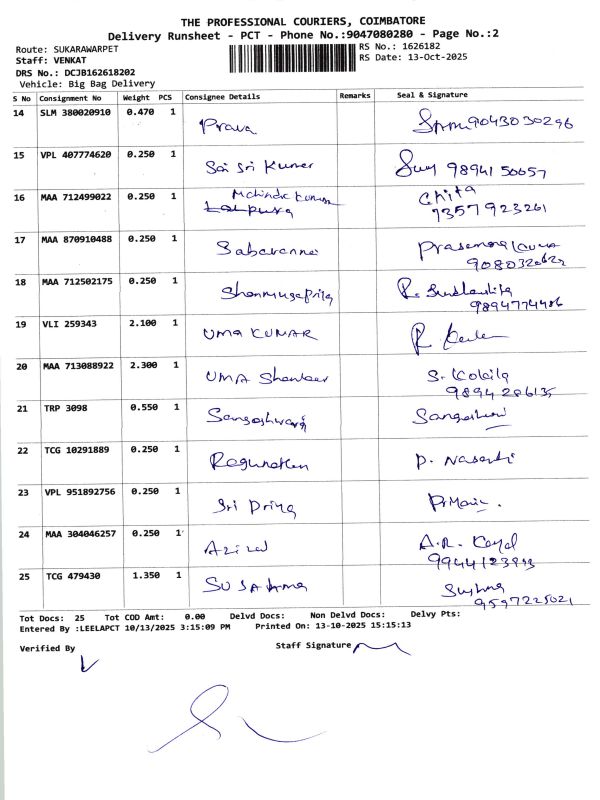 THE PROFESSIONAL COURIERS, COIMBATORE
Delivery Runsheet - PCT - Phone No.:9047080280 - Page No.:2
Route: SUKARAWARPET RS No.: 1626182
Staff: VENKAT RS Date: 13-Oct-2025
DRS No.: DCJB162618202
Vehicle: Big Bag Delivery
S No Consignment No Weight PCS Consignee Details Remarks Seal & Signature
14 SLM 380020910 0.470 1 Prava 9043030296
15 VPL 407774620 0.250 1 Sai Sri Kumar 98941 50657
16 MAA 712499022 0.250 1 Mohinde Kumar Chita
7357923261
17 MAA 870910488 0.250 1 Sabarannai
18 MAA 712502175 0.250 1 Shanmugapriya R.
9894774486
19 VLI 259343 2.100 1 UMA KUMAR R
20 MAA 713088922 2.300 1 UMA Shankar S. Kokila
9894286135
21 TRP 3098 0.550 1 Sangeshwari
22 TCG 10291889 0.250 1 Ragunathan P.
23 VPL 951892756 0.250 1 Sri Priya
24 MAA 304046257 0.250 1 A.R.
25 TCG 479430 1.350 1
9597225021
Tot Docs: 25 Tot COD Amt: 0.00 Delvd Docs: Non Delvd Docs: Delvy Pts:
Entered By :LEELAPCT 10/13/2025 3:15:09 PM Printed On: 13-10-2025 15:15:13
Verified By Staff Signature